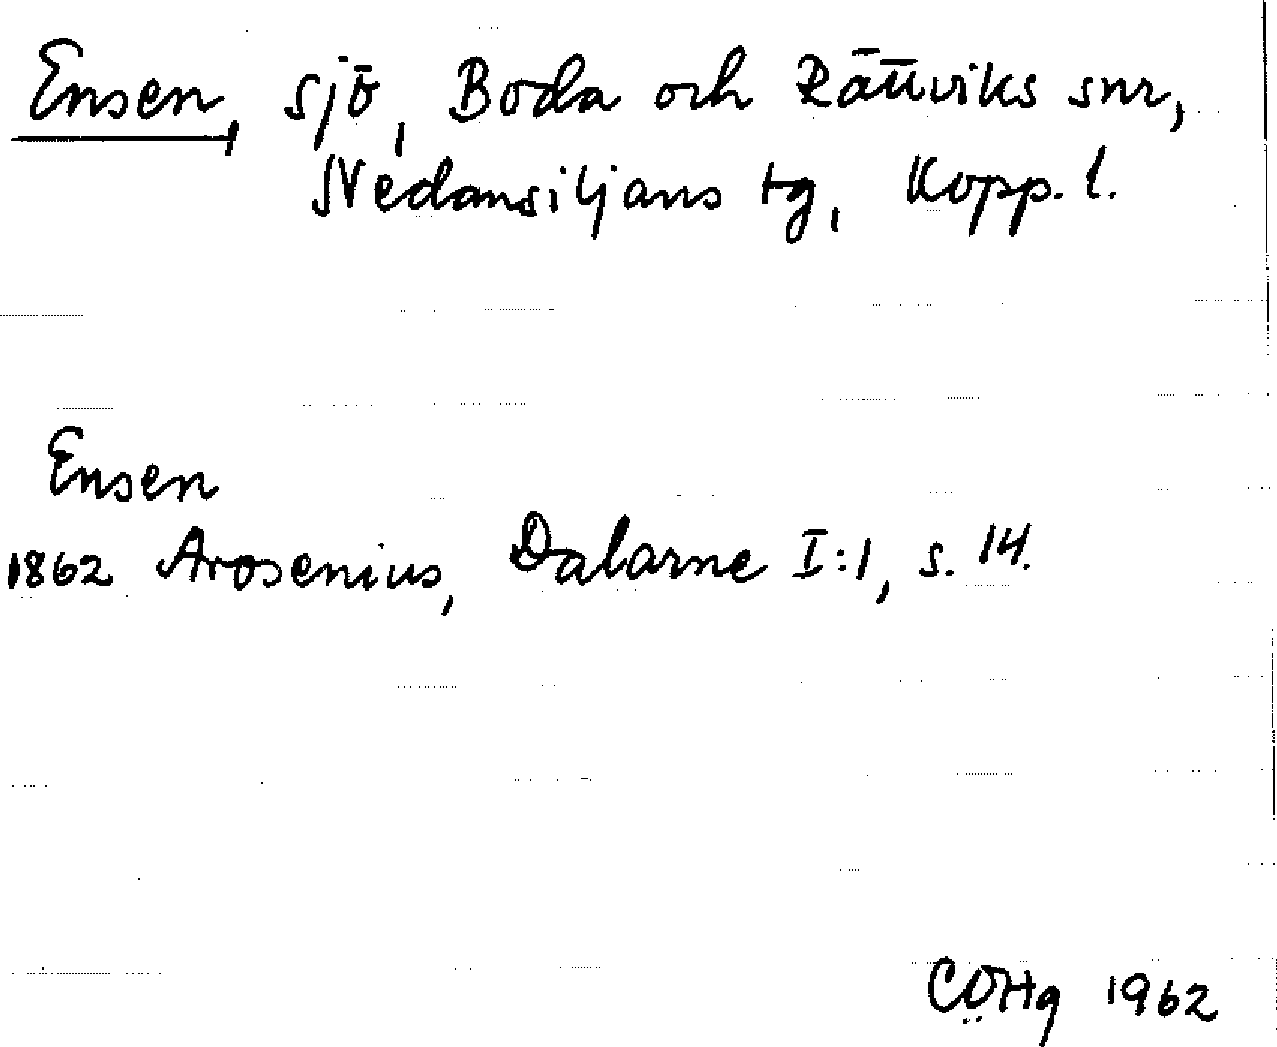 Ensen, sjö, Boda och Rättviks snr,
Nedansiljans tg, Kopp. l.
Ensen
1862 Arosenius, Dalarne I:1, s. 14.
CÖHg 1962